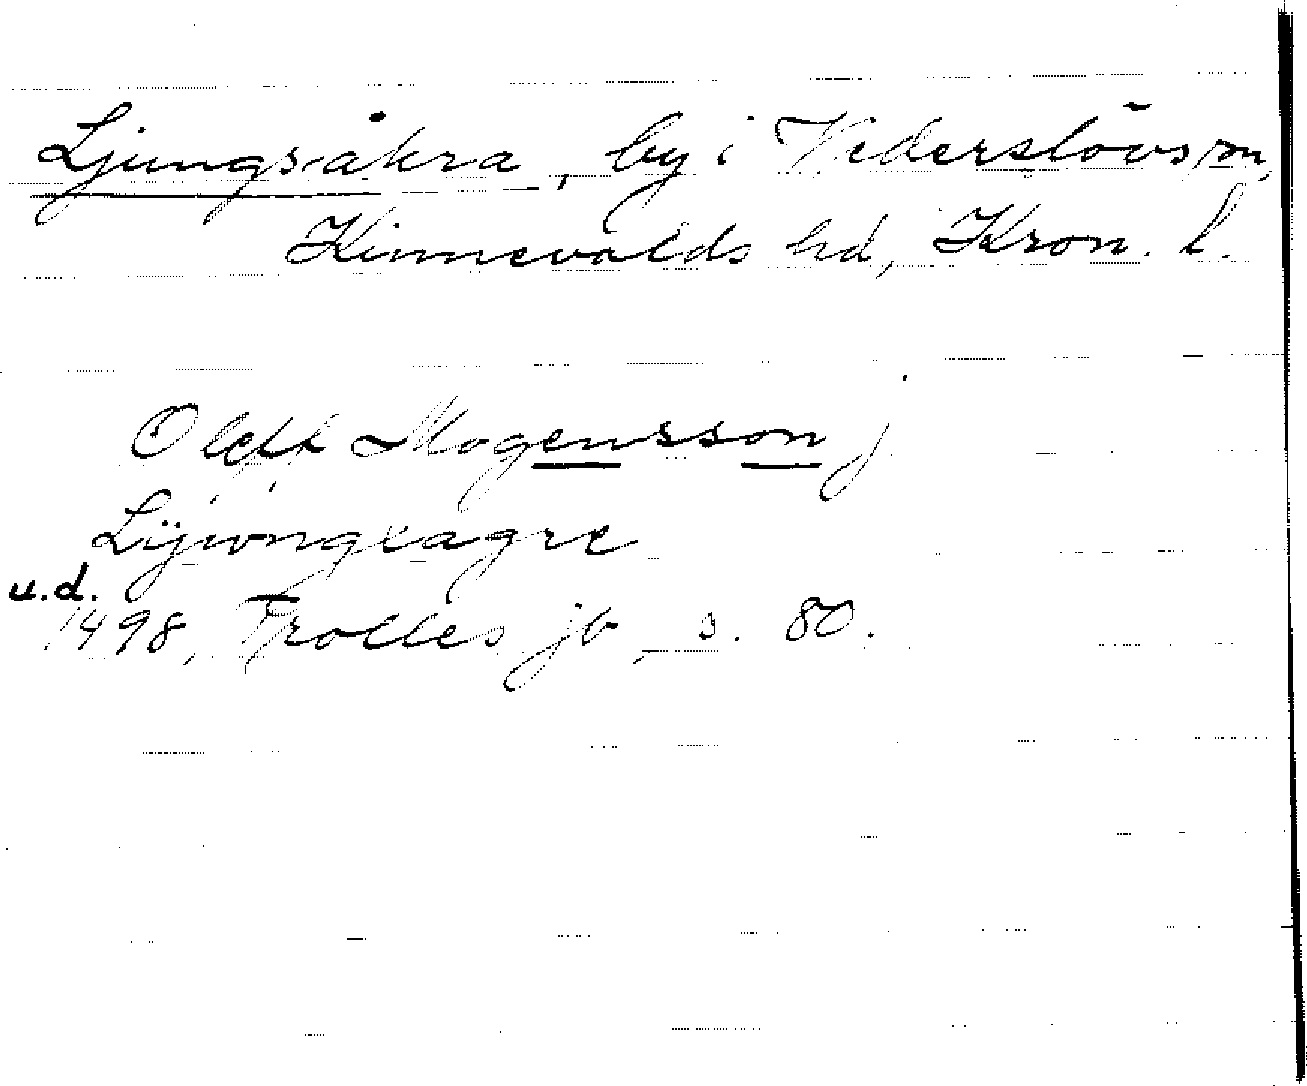 Ljungsåkra, by i Vederslövs sn,
Kinnevalds hd, Kron. l.
Oleff Mogensson j
Lÿwngxagre
u.d.
1498, Trolles jb, s. 80.